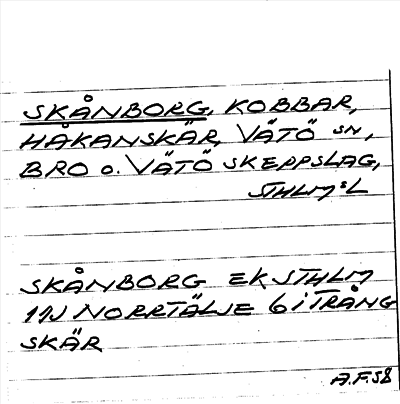 SKÅNBORG, KOBBAR,
HÅKANSKÄR, VÄTÖ SN,
BRO o. VÄTÖ SKEPPSLAG,
STHLM:S L
SKÅNBORG EK STHLM
11J NORRTÄLJE 6 i TRÅNG
SKÄR
A.F. 58